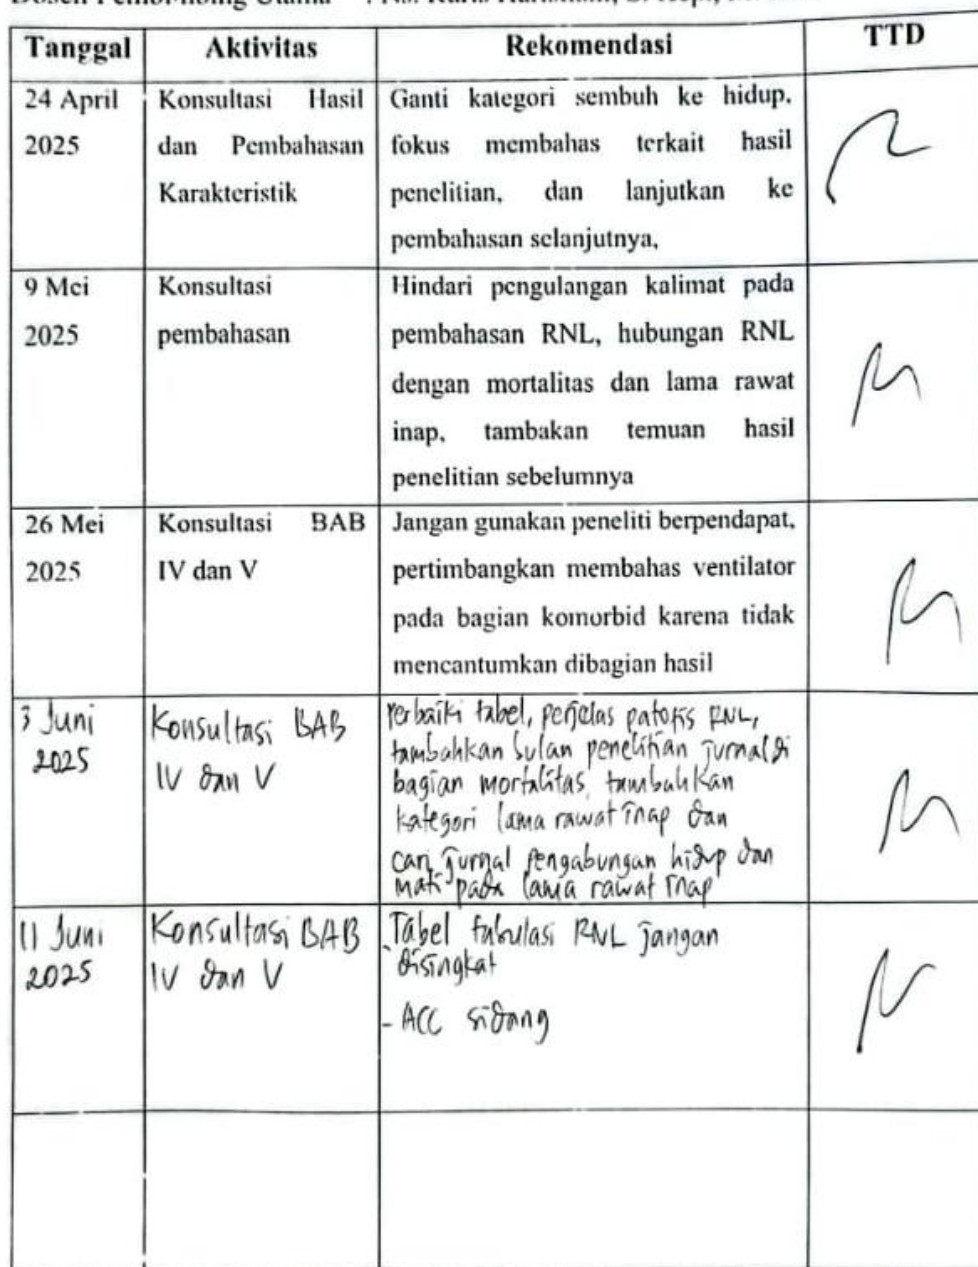 Tanggal Aktivitas Rekomendasi TTD
24 April 2025
Konsultasi Hasil
dan Pembahasan
Karakteristik
Ganti kategori sembuh ke hidup,
fokus membahas terkait hasil
penelitian, dan lanjutkan ke
pembahasan selanjutnya,
9 Mei 2025
Konsultasi
pembahasan
Hindari pengulangan kalimat pada
pembahasan RNL, hubungan RNL
dengan mortalitas dan lama rawat
inap, tambakan temuan hasil
penelitian sebelumnya
26 Mei 2025
Konsultasi BAB
IV dan V
Jangan gunakan peneliti berpendapat,
pertimbangkan membahas ventilator
pada bagian komorbid karena tidak
mencantumkan dibagian hasil
3 Juni
2025
Konsultasi BAB
IV dan V
Perbaiki tabel, perjelas patofis RNL,
tambahkan penelitian jurnal di
bagian mortalitas, tambahkan
kategori lama rawat inap dan
cari jurnal pengabungan hidup dan
mati pada lama rawat inap
11 Juni
2025
Konsultasi BAB
IV dan V
- Tabel tabulasi RNL jangan
disingkat
- ACC sidang